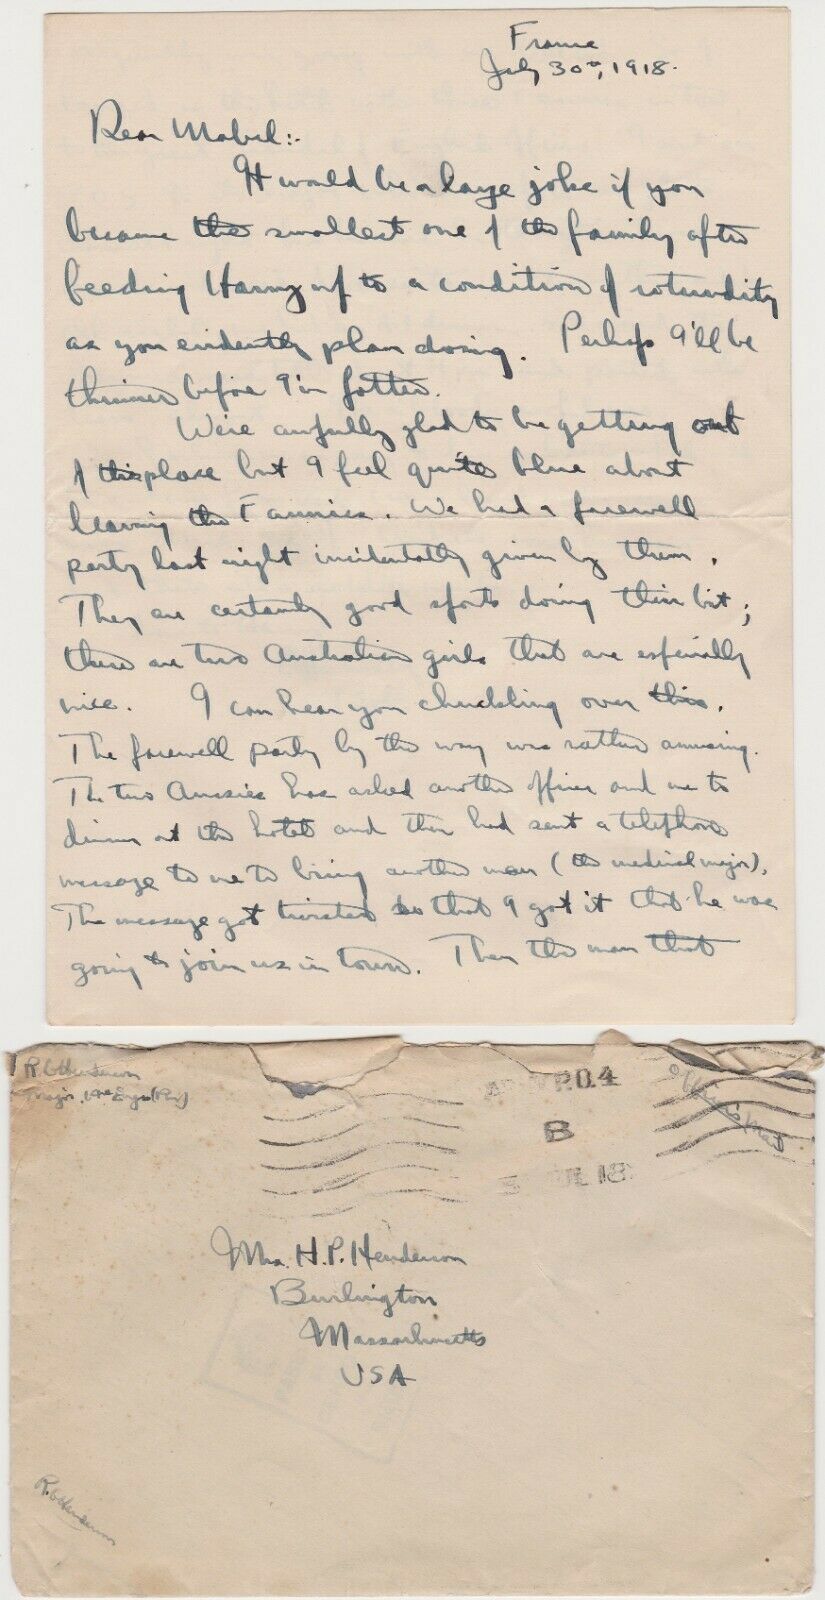 France
July 30th, 1918.
Dear Mabel:-
It would be a large joke if you
became the smallest one of the family after
feeding Harry up to a condition of rotundity
as you evidently plan doing. Perhaps I'll be
thinner before I'm fatter.
We're awfully glad to be getting out
of this place but I feel quite blue about
leaving the Fannies. We had a farewell
party last night incidentally given by them.
They are certainly good sports doing their bit;
there are two Australian girls that are especially
nice. I can hear you chuckling over this.
The farewell party by the way was rather amusing.
The two Aussies has asked another officer and me to
dinner at the hotel and then had sent a telephone
message to me to bring another man (the medical major).
The message got twisted so that I got it that he was
going to join us in town. Then the man that
R Henderson
Major, Engrs (Ry)
A.P.O.4
B
JUL 18
Officer's Mail
Mrs. H. P. Henderson
Burlington
Massachusetts
USA
R. Henderson